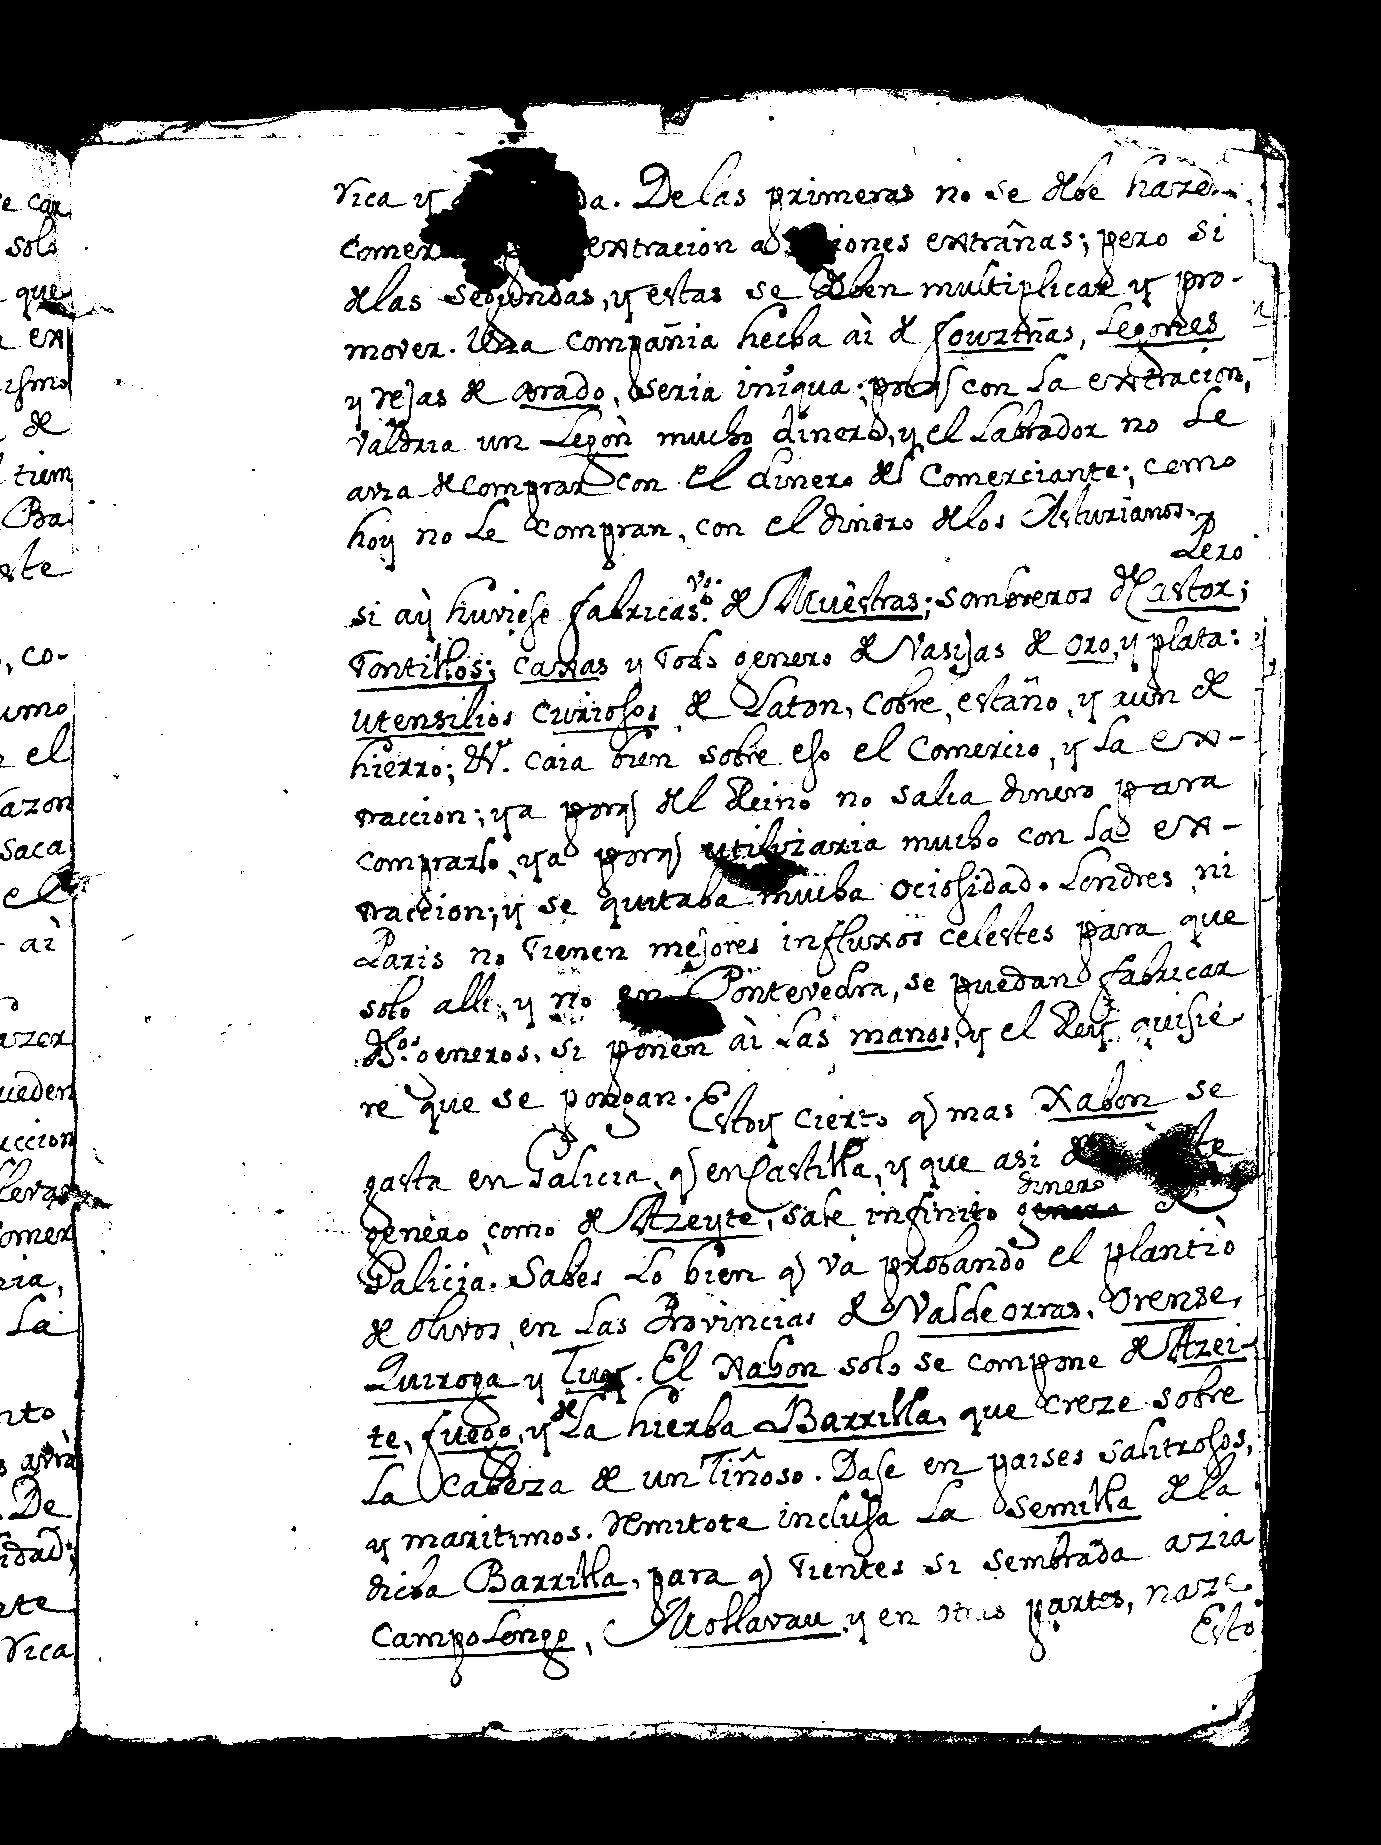 rica y da. De las primeras no se debe hazer
comer extracion a iones extrañas; pero si
de las segundas, y estas se deben multiplicar y pro-
mover. Una compañia hecha ài de fouziñas, Legones
y rejas de arado, seria iniqua; porq con La extracion,
valdria un Legòn mucho dinero, y el Labrador no Le
avia de comprar con el dinero del Comerciante; como
hoy no Le compran, con el dinero de los Asturianos.
Pero
si aÿ huviese fabricas vo. de Muestras; sombreros de Castor;
Tontillos; caxas y todo genero de Vasijas de oro, y plata:
Utensilios curiosos de Laton, Cobre, estaño, y aun de
hierro; &c. caia bien sobre eso el Comercio, y La ex-
traccion; ya porq del Reino no salia dinero para
comprarlo, ya porq utiliziaria mucho con La ex-
traccion; y se quitaba mucha ociosidad. Londres ni
Paris no tienen mejores influxos celestes para que
solo alli, y no en Pontevedra, se puedan fabricar
dhos. generos, si ponen ài Las manos, y el Rey quisie-
re que se pongan. Estoy cierto q mas Xabon se
gasta en Galicia, q en Castilla, y que asi de te
genero como de Azeyte, sale infinito genero dinero de
Galicia. Sabes Lo bien q va probando el plantiò
de olivos en Las Provincias de Valdeorras, Orense,
Quiroga y Tuy. El Xabon solo se compone de Azei-
te, fuego, y de La hierba Barrilla, que creze sobre
La cabeza de un Tiñoso. Dase en paises salitrosos,
y maritimos. Remitote inclusa La semilla de la
dicha Barrilla, para q tientes si sembrada azia
CampoLongo, Mollavau y en otras partes, naze.
Esto